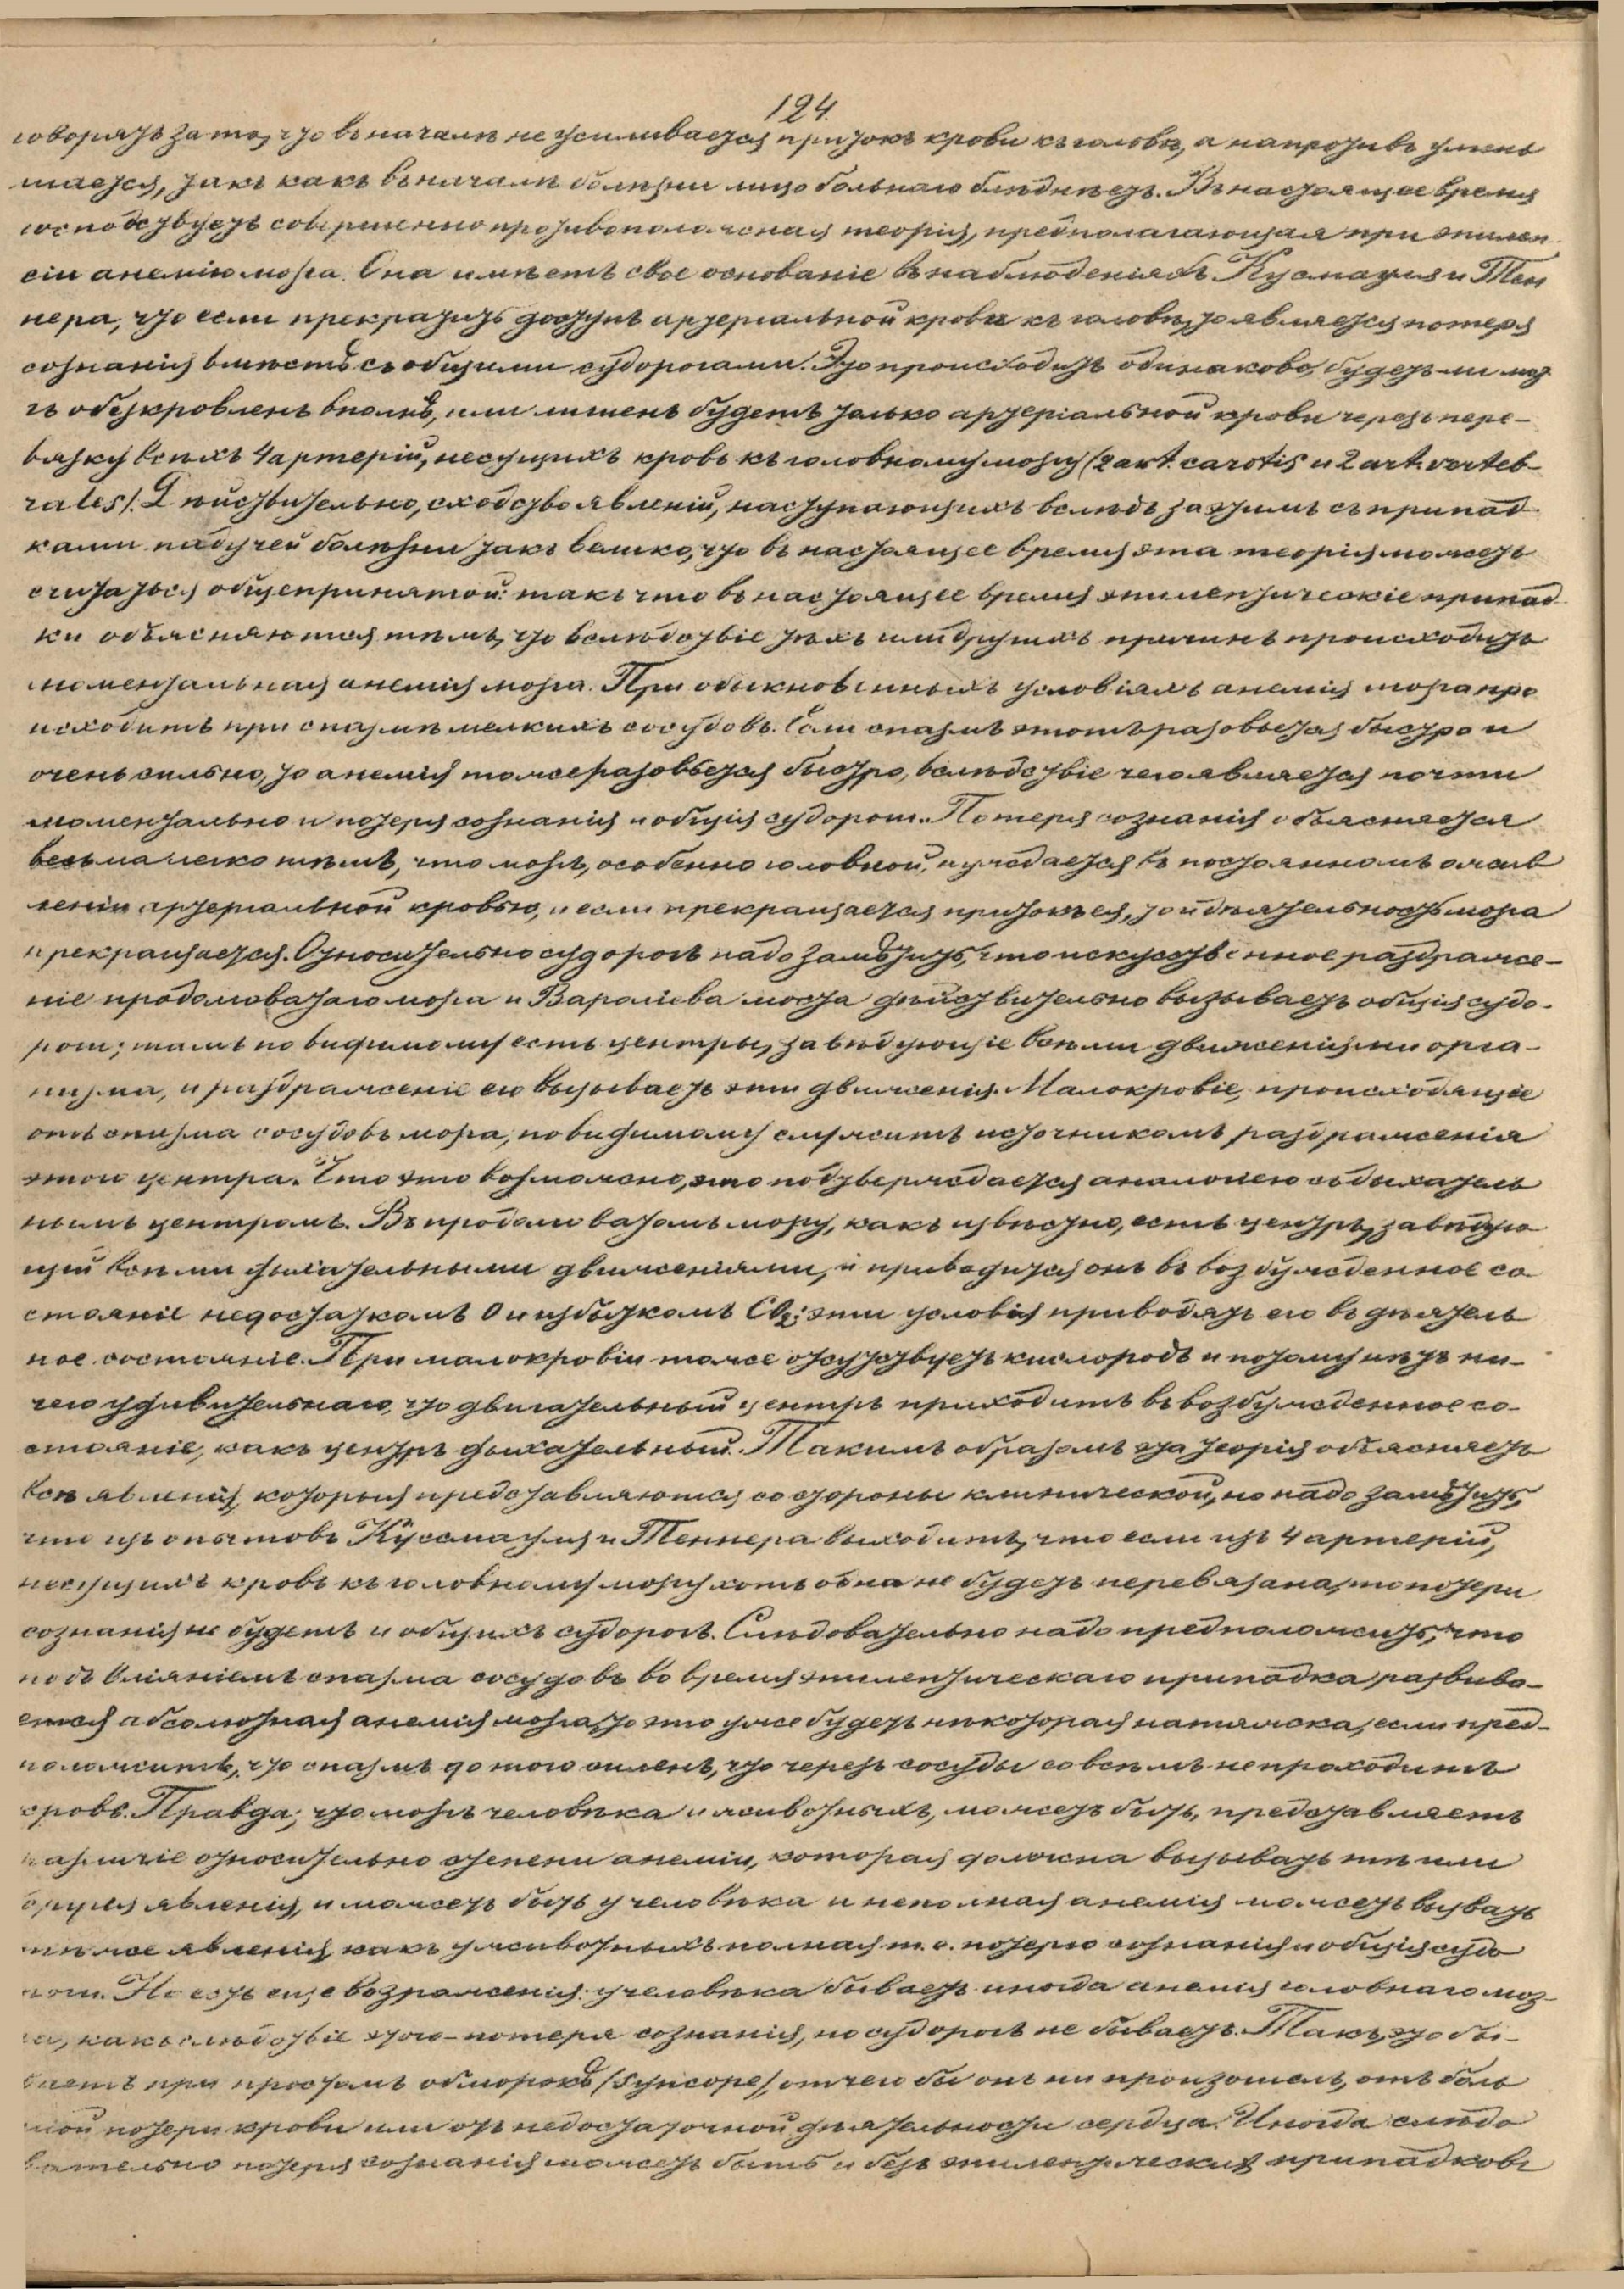 124.
говорятъ за то, что въ началѣ не усиливается притокъ крови къ головѣ, а напротивъ умень
шается, такъ какъ въ началѣ болѣзни лицо больнаго блѣднѣетъ. Въ настоящее время
господствуетъ совершенно противоположная теорія, предполагающая при эпилеп
сіи анемію мозга. Она имѣетъ свое основаніе въ наблюденіяхъ Кусмауля и Тен
нера, что если прекратить доступъ артеріальной крови къ головѣ, то является потеря
сознанія вмѣстѣ съ общими судорогами. Это происходитъ одинаково, будетъ-ли моз
гъ обезкровленъ вполнѣ, или лишенъ будетъ только артеріальной крови черезъ пере-
вязку всѣхъ 4 артерій, несущихъ кровь къ головному мозгу (2 art. carotis и 2 art. verteb-
rales). Дѣйствительно, сходство явленій, наступающихъ вслѣдъ за этимъ съ припад
ками падучей болѣзни такъ велико, что въ настоящее время эта теорія можетъ
считаться общепринятой: такъ что въ настоящее время эпилептическіе припад
ки объясняются тѣмъ, что вслѣдствіе тѣхъ или другихъ причинъ происходитъ
моментальная анемія мозга. При обыкновенныхъ условіяхъ анемія мозга про
исходитъ при спазмѣ мелкихъ сосудовъ. Если спазмъ этотъ разовьется быстро и
очень сильно, то анемія тоже разовьется быстро, вслѣдствіе чего является почти
моментально и потеря сознанія и общія судороги. Потеря сознанія объясняется
весьма легко тѣмъ, что мозгъ, особенно головной, нуждается въ постоянномъ оживъ
леніи артеріальной кровью, и если прекращается притокъ ея, то и дѣятельность мозга
прекращается. Относительно судорогъ надо замѣтить, что искусственное раздраже-
ніе продолговатаго мозга и Вароліева моста дѣйствительно вызываетъ общія судо-
роги; тамъ по видимому есть центры, завѣдующіе всѣми движеніями орга-
низма, и раздраженіе его вызываетъ эти движенія. Малокровіе, происходящіе
отъ спазма сосудовъ мозга, повидимому служитъ источникомъ раздраженія
этого центра. Что это возможно, это подтверждается аналогіею съ дыхатель
нымъ центромъ. Въ продолговатомъ мозгу, какъ извѣстно, есть центръ, завѣдую
щій всѣми дыхательными движеніями, и приводится онъ въ возбужденное со
стояніе недостаткомъ O и избыткомъ CO₂; эти условія приводятъ его въ дѣятель
ное состояніе. При малокровіи тоже отсутствуетъ кислородъ и потому нѣтъ ни-
чего удивительнаго, что двигательный центръ приходитъ въ возбужденное со-
стояніе, какъ центръ дыхательный. Такимъ образомъ эта теорія объясняетъ
всѣ явленія, которыя представляются со стороны клинической, но надо замѣтить,
что изъ опытовъ Куссмауля и Теннера выходитъ, что если изъ 4 артерій,
несущихъ кровь къ головному мозгу хоть одна не будетъ перевязана, то потери
сознанія не будетъ и общихъ судорогъ. Слѣдовательно надо предположить, что
подъ вліяніемъ спазма сосудовъ во время эпилептическаго припадка развива-
ется абсолютная анемія мозга, то это уже будетъ нѣкоторая натяжка, если пред-
положить, что спазмъ до того силенъ, что черезъ сосуды совсѣмъ не проходитъ
кровь. Правда, что мозгъ человѣка и животныхъ, можетъ быть, представляетъ
различіе относительно степени анеміи, которая должна вызывать тѣ или
другія явленія, и можетъ быть у человѣка и неполная анемія можетъ вызвать
тѣ же явленія, какъ у животныхъ полная т. е. потерю сознанія и общія судо
роги. Но есть еще возраженія: у человѣка бываетъ иногда анемія головнаго моз-
га, какъ слѣдствіе этого - потеря сознанія, но судорогъ не бываетъ. Такъ, это бы-
ваетъ при простомъ обморокѣ (syncope), отчего бы онъ ни произошелъ, отъ боль
шой потери крови или отъ недостаточной дѣятельности сердца. Иногда слѣдо
вательно потеря сознанія можетъ быть и безъ эпилептическихъ припадковъ